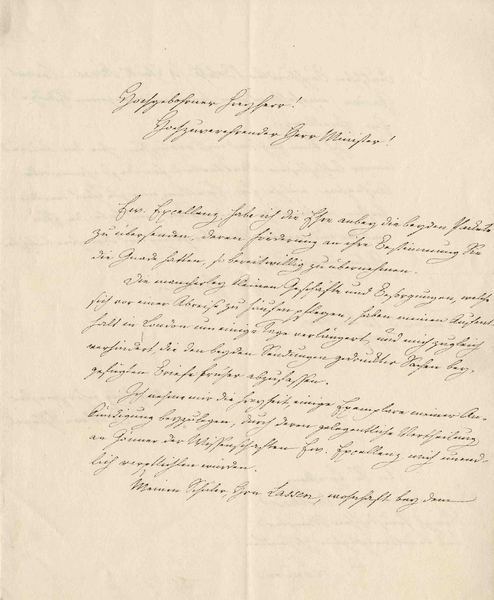 Hochgebohrner Freyherr!
Hochzuverehrender Herr Minister!
Ew. Excellenz habe ich die Ehre anbey die beyden Packete
zu übersenden, deren Förderung an ihre Bestimmung Sie
die Gnade hatten, so bereitwillig zu übernehmen.
Die mancherley kleinen Geschäfte und Besorgungen, welche
sich vor einer Abreise zu häufen pflegen, haben meinen Aufent-
halt in London um einige Tage verlängert, und mich zugleich
verhindert die den beyden Sendungen gedruckter Sachen bey-
gefügten Briefe früher abzufassen.
Ich nehme mir die Freyheit einige Exemplare meiner An-
kündigung beyzulegen, durch deren gelegentliche Vertheilung
an Gönner der Wissenschaften Ew. Excellenz mich unend-
lich verpflichten würden.
Meinen Schüler, Hrn Lassen, wohnhaft bey dem